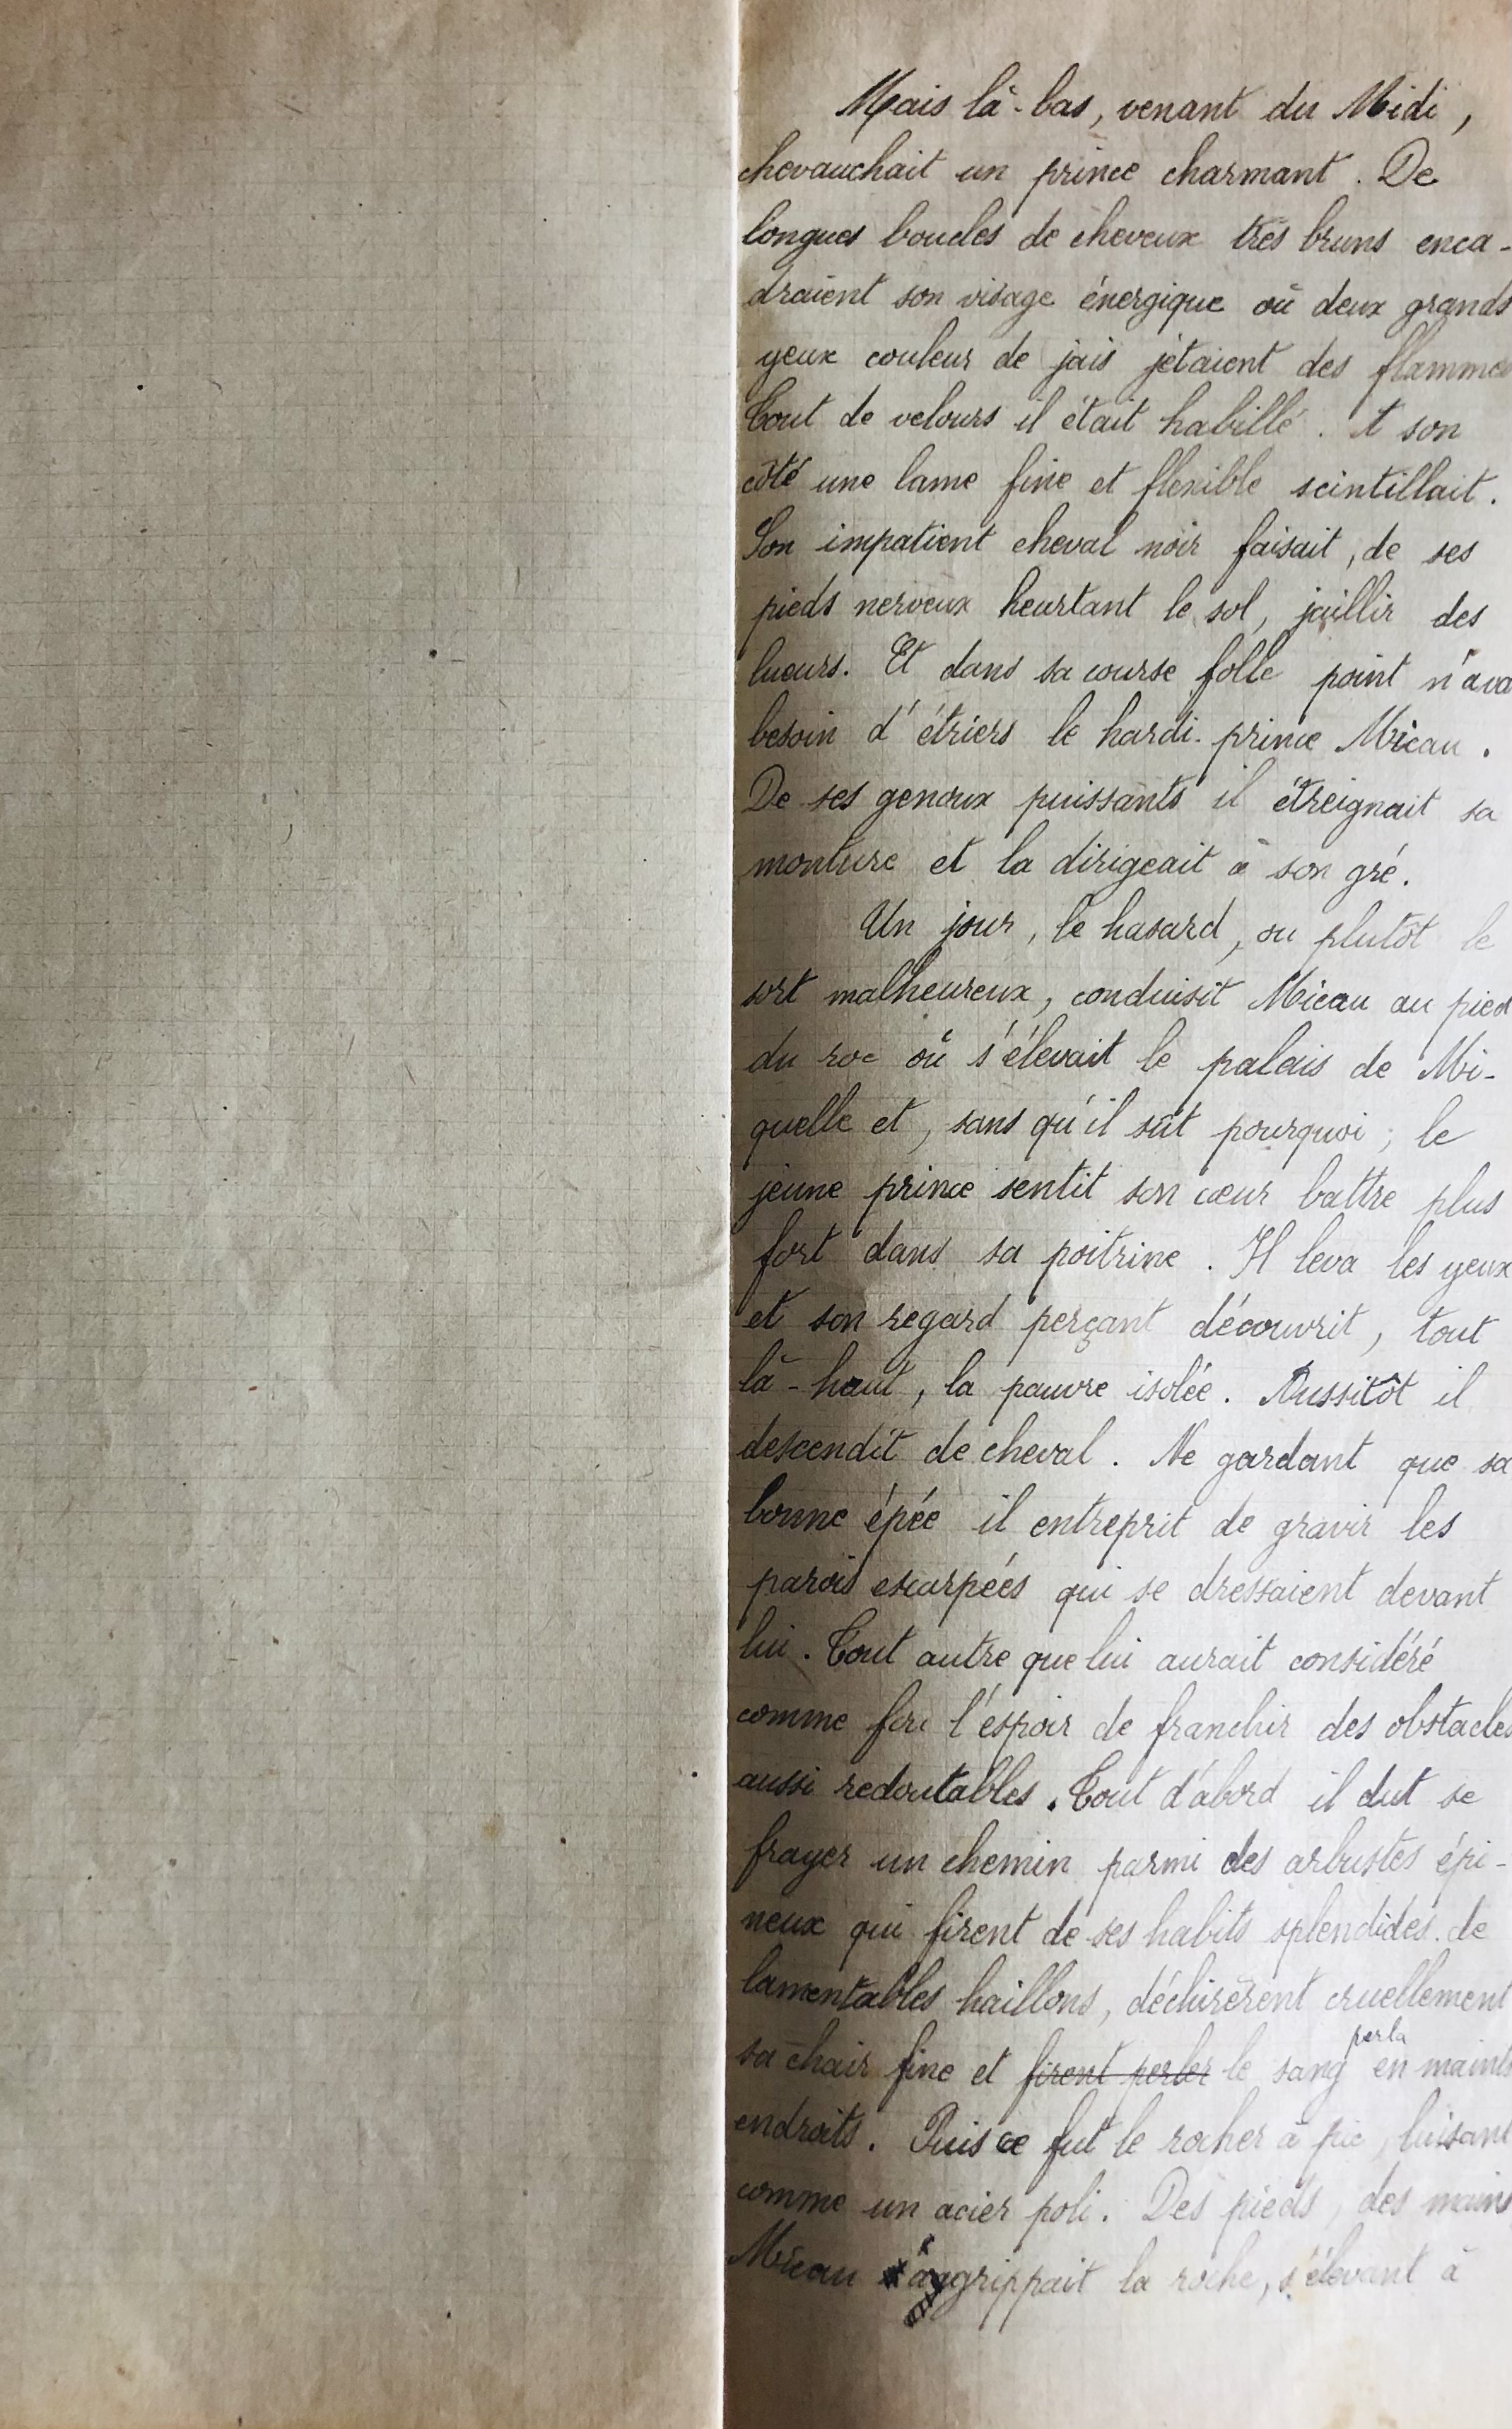 Mais là-bas, venant du Midi,
chevauchait un prince charmant. De
longues boucles de cheveux très bruns enca-
draient son visage énergique où deux grands
yeux couleur de jais jetaient des flammes
Tout de velours il était habillé. A son
côté une lame fine et flexible scintillait.
Son impatient cheval noir faisait, de ses
pieds nerveux heurtant le sol, jaillir des
lueurs. Et dans sa course folle point n'ava
besoin d'étriers le hardi prince Micau.
De ses genoux puissants il étreignait sa
monture et la dirigeait à son gré.
Un jour, le hasard, ou plutôt le
sort malheureux, conduisit Micau au pied
du roc où s'élevait le palais de Mi-
quelle et, sans qu'il sût pourquoi, le
jeune prince sentit son cœur battre plus
fort dans sa poitrine. Il leva les yeux
et son regard perçant découvrit, tout
là-haut, la pauvre isolée. Aussitôt il
descendit de cheval. Ne gardant que sa
bonne épée il entreprit de gravir les
parois escarpées qui se dressaient devant
lui. Tout autre que lui aurait considéré
comme fou l'espoir de franchir des obstacles
aussi redoutables. Tout d'abord il dut se
frayer un chemin parmi des arbustes épi-
neux qui firent de ses habits splendides de
lamentables haillons, déchirèrent cruellement
sa chair fine et firent perler le sang perla en maints
endroits. Puis ce fut le rocher à pic, luisant
comme un acier poli. Des pieds, des mains
Micau agrippait la roche, s'élevant à